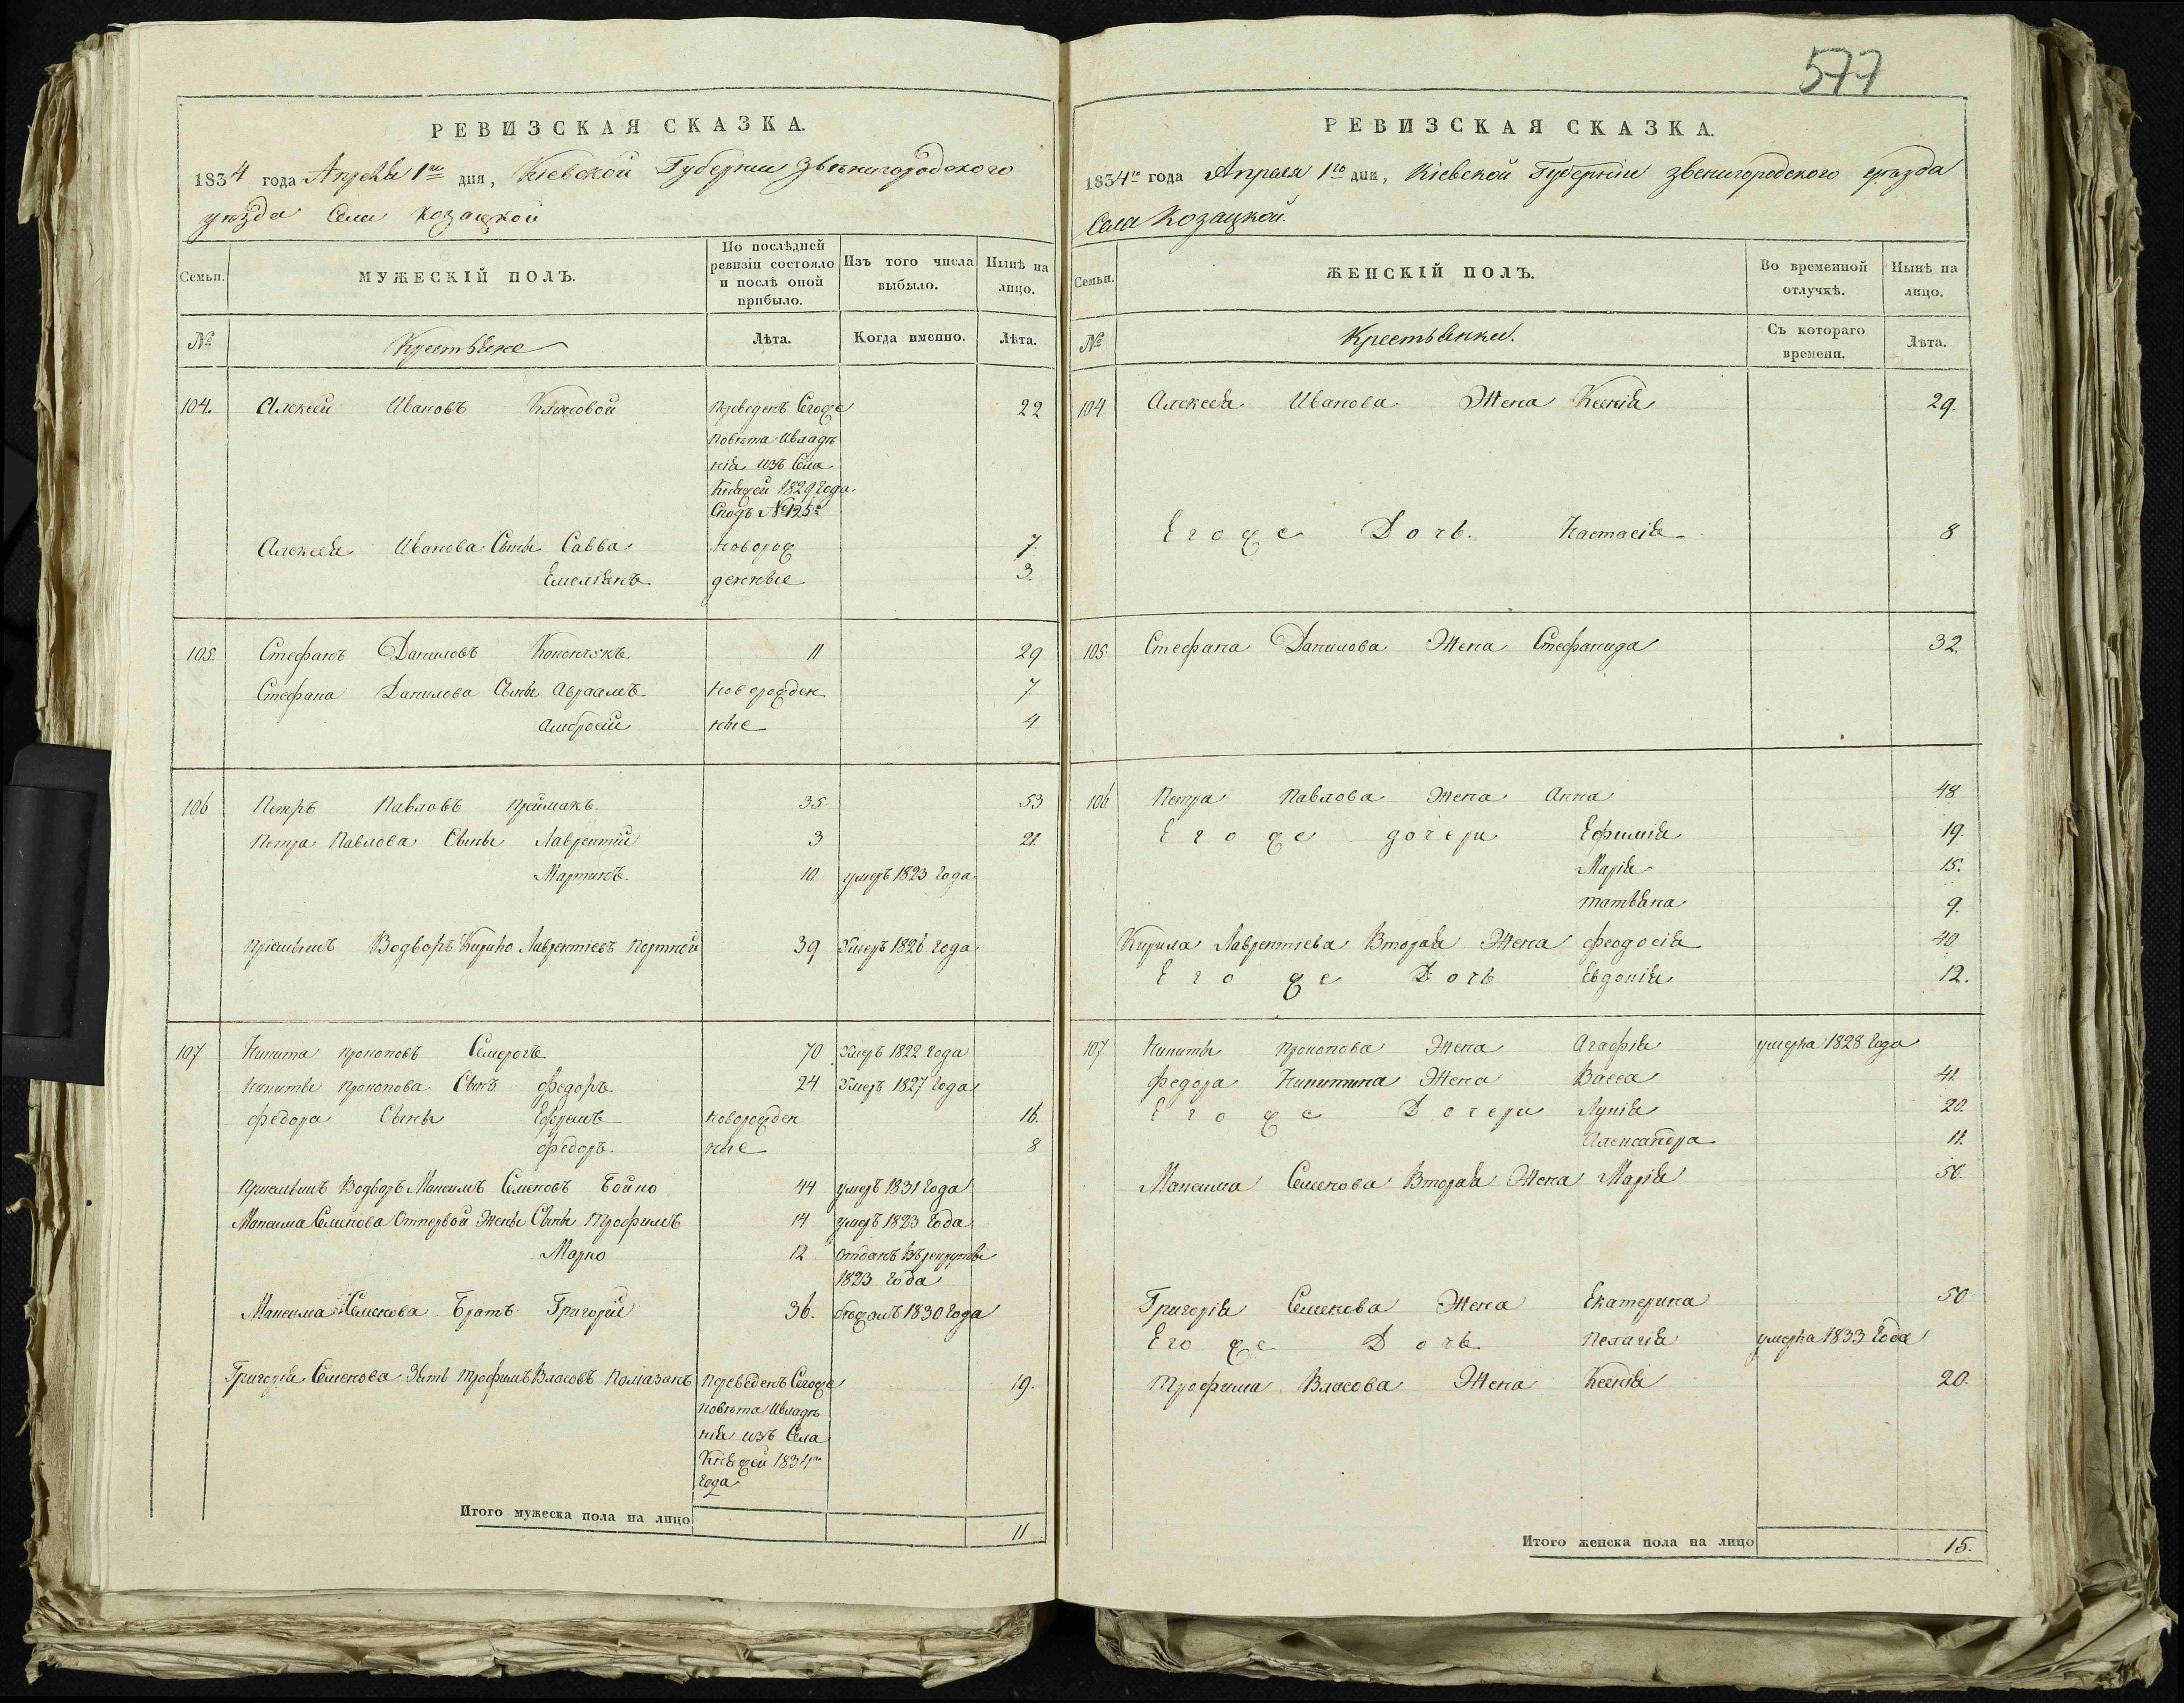 577
РЕВИЗСКАЯ СКАЗКА.
1834 года Апреля 1го дня, Кіевской Губернии Звенигородского
уезда Села Козацкой
Семьи. МУЖЕСКІЙ ПОЛЪ. По послѣдней ревизіи состояло и послѣ оной прибыло. Изъ того числа выбыло. Нынѣ на лицо.
№ Крестьяне Лѣта. Когда именно. Лѣта.
104. Алексей Ивановъ переведенъ Сегоже 22
повѣта Ивладѣ
нія изъ Села
Княжей 1829 года
Сподъ № 125
Алексея Иванова Сыны Савва новорож 7.
Емеліянъ денные 3.
105. Стефанъ Даниловъ 11 29
Стефана Данилова Сыны Авраамъ новорожден 7
Амбросій ные 4
106 Петръ Павловъ Преймакъ 35 53
Петра Павлова Сыны Лаврентій 3 21
Мартинъ 10 умеръ 1823 года
Приемышъ Водворъ Кирило Лаврентіевъ Портной 39 Умеръ 1826 года
107 Никита Прокоповъ 70 Умеръ 1822 года
Никиты Прокопова Сынъ Федоръ 24 Умеръ 1827 года
Федора Сыны Ефремъ новорожден 16.
Федоръ. ные 8
Приемышъ Водворъ Максимъ Семеновъ Бойко 44 умеръ 1831 года
Максима Семенова Отпервой Жены Сыны Трофимъ 14 умеръ 1823 Года
Марко 12 Отданъ Врекруты
1823 года
Максима Семенова Братъ Григорій 36. бежалъ 1830 года
Григорія Семенова Зять Трофимъ Власовъ Помазанъ переведенъ Сегоже 19.
повѣта Ивладѣ
нія изъ Села
Княжей 1834го
года
Итого мужеска пола на лицо 11
РЕВИЗСКАЯ СКАЗКА.
1834го года Апреля 1го дня, Кіевской Губерніи Звенигородского уезда
Села Козацкой.
Семьи. ЖЕНСКІЙ ПОЛЪ. Во временной отлучкѣ. Нынѣ на лицо.
№ Крестьянки. Съ котораго времени. Лѣта.
104 Алексея Иванова Жена Ксенія 29.
Егоже Дочь. Настасія 8
105 Стефана Данилова Жена Стефанида 32.
106 Петра Павлова Жена Анна 48
Егоже дочери Ефимія 19
Марія 15.
татьяна 9.
Кирила Лаврентіева Вторая Жена феодосія 40
Егоже Дочь Евдокія 12.
107 Никиты Прокопова Жена Агафія умерла 1828 года
Федора Никитина Жена Васса 41
Егоже Дочери Лукія 20.
Александра 11.
Максима Семенова Вторая Жена Марія 56.
Григорія Семенова Жена Екатерина 50
Егоже Дочь Пелагія умерла 1833 года
Трофима Власова Жена Ксенія 20.
Итого женска пола на лицо 15.